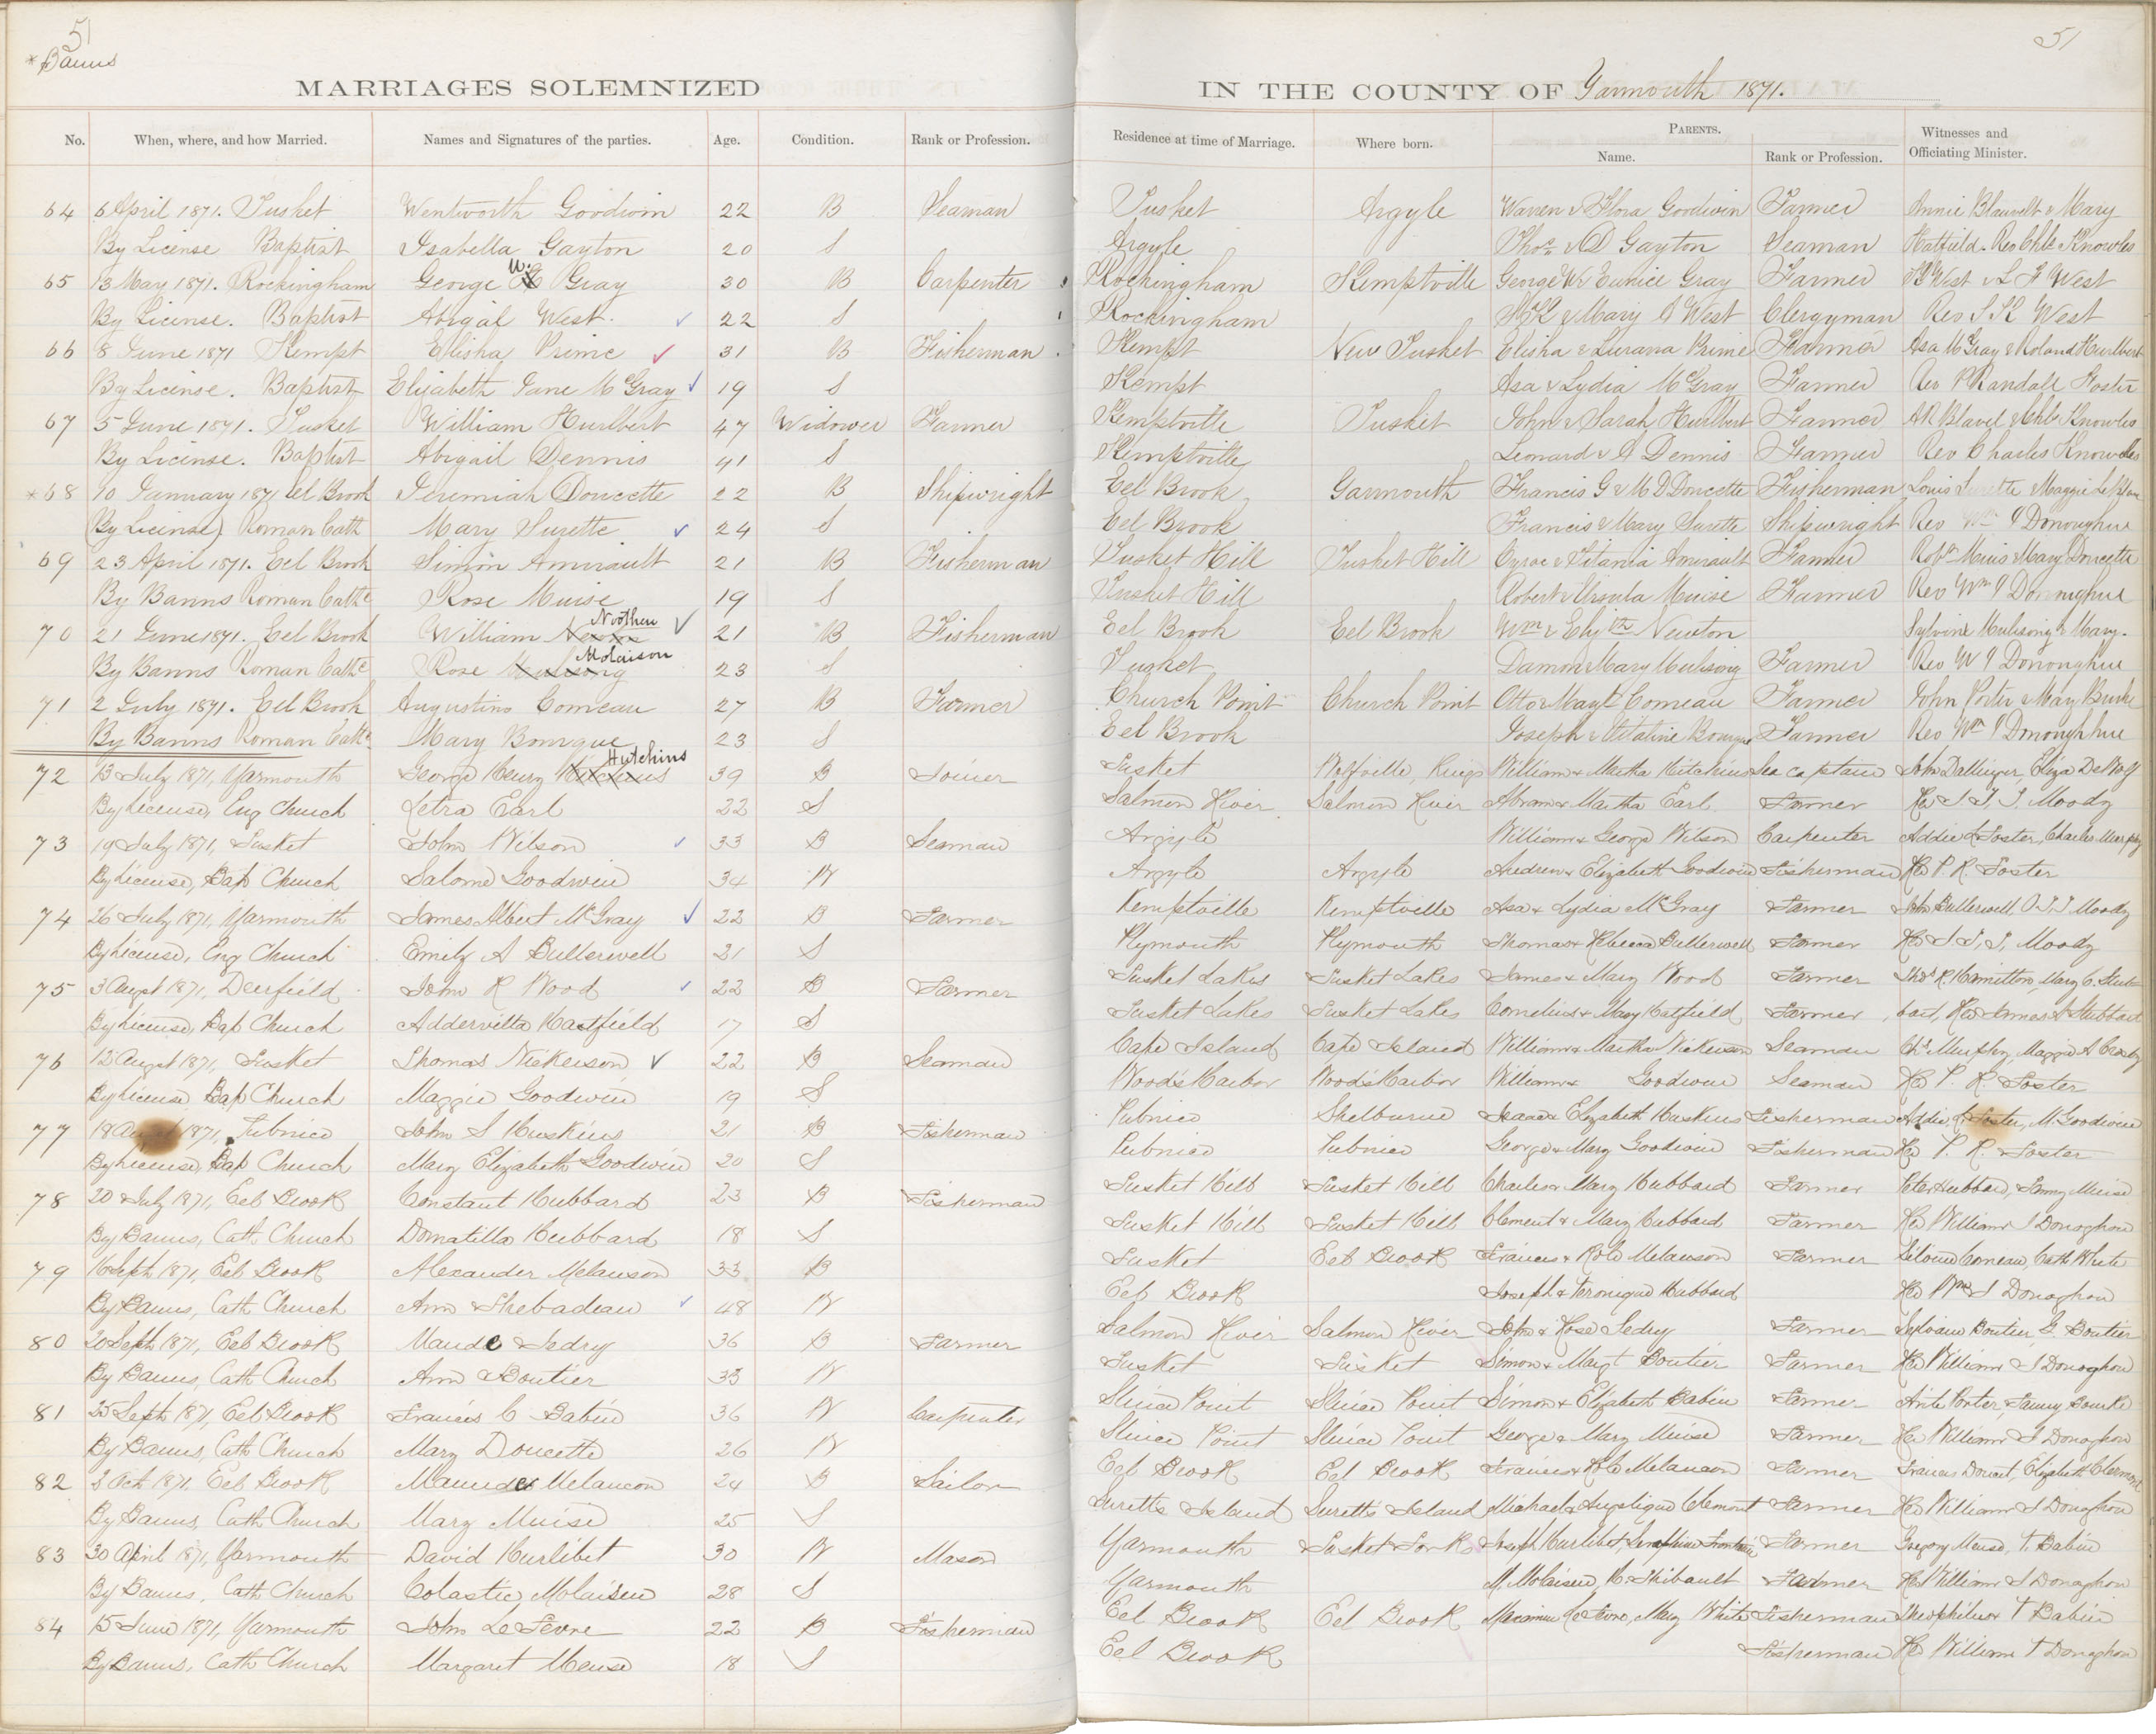 51
* Banns
51
MARRIAGES SOLEMNIZED IN THE COUNTY OF Yarmouth 1871.
No. When, where, and how Married. Names and Signatures of the parties. Age. Condition. Rank or Profession. Residence at time of Marriage. Where born. PARENTS. Name. Rank or Profession. Witnesses and Officiating Minister.
64 6 April 1871. Tusket Wentworth Goodwin 22 B Seaman Tusket Argyle Warren & Flora Goodwin Farmer Annie Blauvelt & Mary
By License Baptist Isabella Gayton 20 S Argyle Thos & D Gayton Seaman Hatfield. Rev Chls Knowles
65 13 May 1871. Rockingham George W. Gray 30 B Carpenter Rockingham Kemptville George W & Eunice Gray Farmer West & L F West
By License. Baptist Abigal West. 22 S Rockingham & Mary A West Clergyman Rev West
66 8 June 1871 Kempt Elisha Prime 31 B Fisherman Kempt New Tusket Elisha & Lurana Prime Farmer Asa McGray & Roland Hurlbert
By License. Baptist Elizabeth Jane McGray 19 S Kempt Asa & Lydia McGray Farmer Rev P Randall Foster
67 5 June 1871. Tusket William Hurlbert 47 Widower Farmer Kemptville Tusket John & Sarah Hurlbert Farmer & Chls Knowles
By License. Baptist Abigail Dennis 41 S Kemptville Leonard & A Dennis Farmer Rev Charles Knowles
*68 10 January 1871 Eel Brook Jeremiah Doucette 22 B Shipwright Eel Brook Yarmouth Francis G & M D Doucette Fisherman Louis Surette & Maggie
(By License) Roman Cath Mary Surette 24 S Eel Brook Francis & Mary Surette Shipwright Rev Wm J Donoughue
69 23 April 1871. Eel Brook Simon Amirault 21 B Fisherman Tusket Hill Tusket Hill & Vitania Amirault Farmer Robt Muis & Mary Doucette
By Banns Roman Cathc Rose Muise 19 S Tusket Hill Robert & Ursula Muise Farmer Rev Wm J Donoughue
70 21 June 1871. Eel Brook William Noothen 21 B Fisherman Eel Brook Eel Brook Wm & Elizth Newton Sylvine Mulisong & Mary.
By Banns Roman Cathc Rose Molaison 23 S Tusket Damon & Mary Mulisong Farmer Rev W J Donoughue
71 2 July 1871. Eel Brook Augustins Comeau 27 B Farmer Church Point Church Point Otto & Mayt Comeau Farmer John Porter & Mary Burke
By Banns Roman Cathc Mary Bourque 23 S Eel Brook Joseph & Vitaline Bourque Farmer Rev Wm J Donoughhue
72 13 July 1871, Yarmouth George Henry Hutchins 39 B Joiner Tusket Wolfville, Kings William & Martha Hitchins Sea captain John Dallinger, Eliza DeWolf
By license, Eng Church Letra Earl 22 S Salmon River Salmon River Abram & Martha Earl Farmer Rev J. T. T. Moody
73 19 July 1871, Tusket John Wilson 33 B Seaman Argyle William & George Wilson Carpenter Addie R Foster, Charles Murphy
By license, Bap Church Salome Goodwin 34 W Argyle Argyle Andrew & Elizabeth Goodwin Fisherman Rev P. R. Foster
74 26 July 1871, Yarmouth James Albert McGray 22 B Farmer Kemptville Kemptville Asa & Lydia McGray Farmer John Bullerwell, J T T Moody
By license, Eng Church Emily A Bullerwell 21 S Plymouth Plymouth Thomas & Rebecca Bullerwell Farmer Rev J. T. T. Moody
75 3 August 1871, Deerfield John R Wood 22 B Farmer Tusket Lakes Tusket Lakes James & Mary Wood Farmer Thos R. Hamilton, Mary C.
By license, Bap Church Addervilla Hatfield 17 S Tusket Lakes Tusket Lakes Cornelius & Mary Hatfield Farmer Rev James A Stubbert
76 12 August 1871, Tusket Thomas Nickerson 22 B Seaman Cape Island Cape Island William & Martha Nickerson Seaman Chs Murphy, Maggie A Crosby
By license Bap Church Maggie Goodwin 19 S Woods Harbor Woods Harbor William & Goodwin Seaman Rev P. R. Foster
77 18 August 1871, Pubnico John S Huskins 21 B Fisherman Pubnico Shelburne Isaac & Elizabeth Huskins Fisherman Addie R. Foster, M. Goodwin
By license, Bap Church Mary Elizabeth Goodwin 20 S Pubnico Pubnico George & Mary Goodwin Fisherman Rev P. R. Foster
78 20 July 1871, Eel Brook Constant Hubbard 23 B Fisherman Tusket Hill Tusket Hill Charles & Mary Hubbard Farmer Peter Hubbard, Fanny Muise
By Banns, Cath Church Domatilla Hubbard 18 S Tusket Hill Tusket Hill Clement & Mary Hubbard Farmer Rev William J Donoghou
79 16 Sept 1871, Eel Brook Alexander Melanson 33 B Tusket Eel Brook Francis & Rose Melanson Farmer Comeau, Cath White
By Banns, Cath Church Ann Shebadeau 48 W Eel Brook Joseph & Veronique Hubbard Rev Wm J Donoghou
80 20 Sept 1871, Eel Brook Maude Jedry 36 B Farmer Salmon River Salmon River John & Rose Jedry Farmer Sylvain Boutier, G. Boutier
By Banns, Cath Church Ann Boutier 33 W Tusket Tusket Simon & Margt Boutier Farmer Rev William J Donoghou
81 25 Sept 1871, Eel Brook Francis C Babin 36 W Carpenter Sluice Point Sluice Point Simon & Elizabeth Babin Farmer Porter, Fanny Bourke
By Banns, Cath Church Mary Doucette 26 W Sluice Point Sluice Point George & Mary Muise Farmer Rev William J Donoghou
82 3 Oct 1871, Eel Brook Maunde Melancon 24 B Sailor Eel Brook Eel Brook Francis & Rose Melancon Farmer Francis Doucet, Elizabeth Clermont
By Banns, Cath Church Mary Muise 25 S Suretts Island Suretts Island Michael & Angelique Clemont Farmer Rev William J Donoghou
83 30 April 1871, Yarmouth David Hurlibet 30 W Mason Yarmouth Tusket Forks Joseph Hurlibet, Seraphine Farmer Gregory Meuse, T. Babin
By Banns, Cath Church Colastie Molaisen 28 S Yarmouth M. Molaisen, C. Thibault Farmer Rev William J Donoghou
84 15 June 1871, Yarmouth John LeFevre 22 B Fisherman Eel Brook Eel Brook Maximin LeFevre, Mary White Fisherman Theophilus & T Babin
By Banns, Cath Church Margaret Meuse 18 S Eel Brook Fisherman Rev William T Donoghou